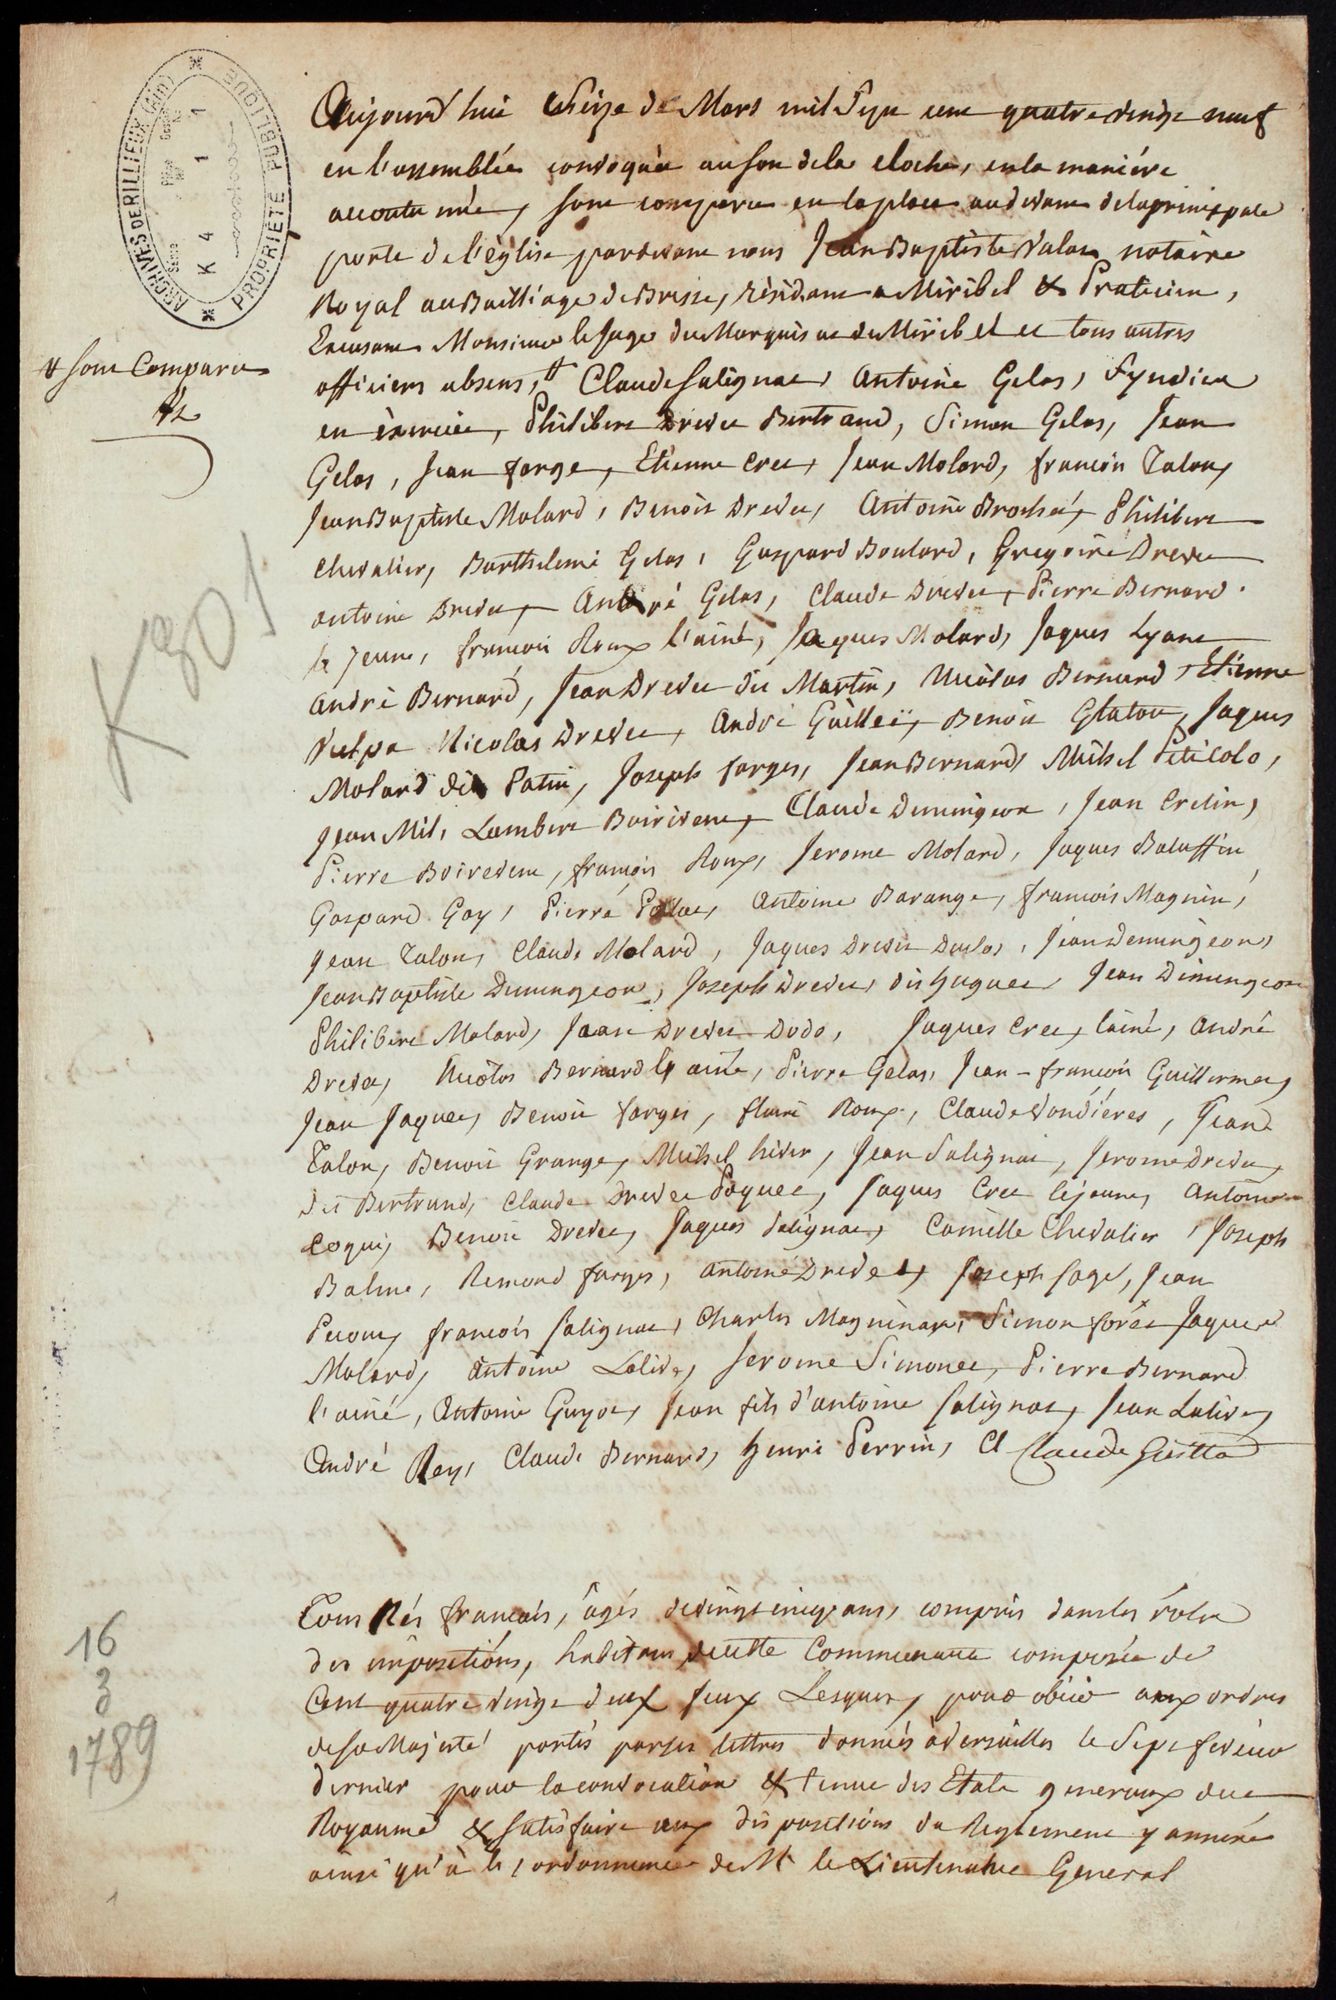 ARCHIVES DE RILLIEUX (Ain)
PROPRIÉTÉ PUBLIQUE
K 4 1 1
Aujourd'hui seize de Mars mil Sept cent quatre vingt neuf
en l'assemblée convoquée au son de la cloche, en la maniére
accoutumée, sont comparu en la place au devant de la principale
porte de l'église pardevant nous Jean Baptiste notaire
Royal au Bailliage de Bresse, résidant a Miribel & Praticien,
Excusant Monsieur le Juge du Marquisat de Miribel et tous autres
# sont Comparu
officiers absens, # Claude Salignat, Antoine Gelas, Syndics
en exercice, Philibert Drevet Bertrand, Simon Gelas, Jean
Gelas, Jean farge, Etienne Cret, Jean Molard, francois Talon,
Jean Baptiste Molard, Benoit Drevet, Antoine Brochet, Philibert
Chevalier, Barthelemi Gelas, Gaspard Boulard, Gregoire Drevet
antoine Drevet, André Gelas, Claude Drevet, Pierre Bernard
le jeune, francois Roux l'ainé, Jaques Molard, Jaques Lyant
André Bernard, Jean Drevet dit Martin, Nicolas Bernard, Etienne
Vulpa Nicolas Drevet, André Guillet, Benoit Glatou, Jaques
Molard dit Patin, Joseph farges, Jean Bernard, Michel Peticolo,
Jean Mil, Lambert Boirivent, Claude Demingeon, Jean Cretin,
Pierre Boirevent, francois Roux, Jerome Molard, Jaques Balaffin
Gaspard Gay, Pierre Antoine Barange, francois Magnin,
Jean Talon, Claude Molard, Jaques Drevet Jean Demingeon,
Jean Baptiste Demingeon, Joseph Drevet, dit huguet, Jean Dimingeon
Philibert Molard, Jean Drevet Dodo, Jaques Cret, lainé, André
Drevet, Nicolas Bernard l'ainé, Pierre Gelas, Jean-francois Guillermet,
Jean Jaquet, Benoit farges, Roux, Claude Vondiéres, Jean
Talon, Benoit Grange, Michel hiver, Jean Salignat, Jerome Drevet,
dit Bertrand, Claude Drevet Paquet, Jaques Cret le jeune, Antoine
Coqui, Benoit Drevet, Jaques Salignat, Camille Chevalier, Joseph
Balme, Remond farges, antoine Drevet, Joseph Sage, Jean
francois Salignat, Charles Magninax, Simon foret Jaques
Molard, antoine Lalive, Jerome Simonet, Pierre Bernard
l'ainé, Antoine Guyot, Jean fils d'antoine Salignat, Jean Lalive,
André Rey, Claude Bernard, henri Perrin, et Claude
K 801
Tous Nés francais, âgés de vingt cinq ans, compris dans les rôles
des impositions, habitans de cette Communauté composée de
Cent quatre vingt deux feux Lesquels, pour obéir aux ordres
de Sa Majesté portés par ses lettres données à Versailles le Sept fevrier
dernier pour la convocation & tenue des Etats generaux du
Royaume & satisfaire aux dispositions du Reglement y annéxé
ainsi qu'à l'ordonnance de Mr le Lieutenant General
16
3
1789
1